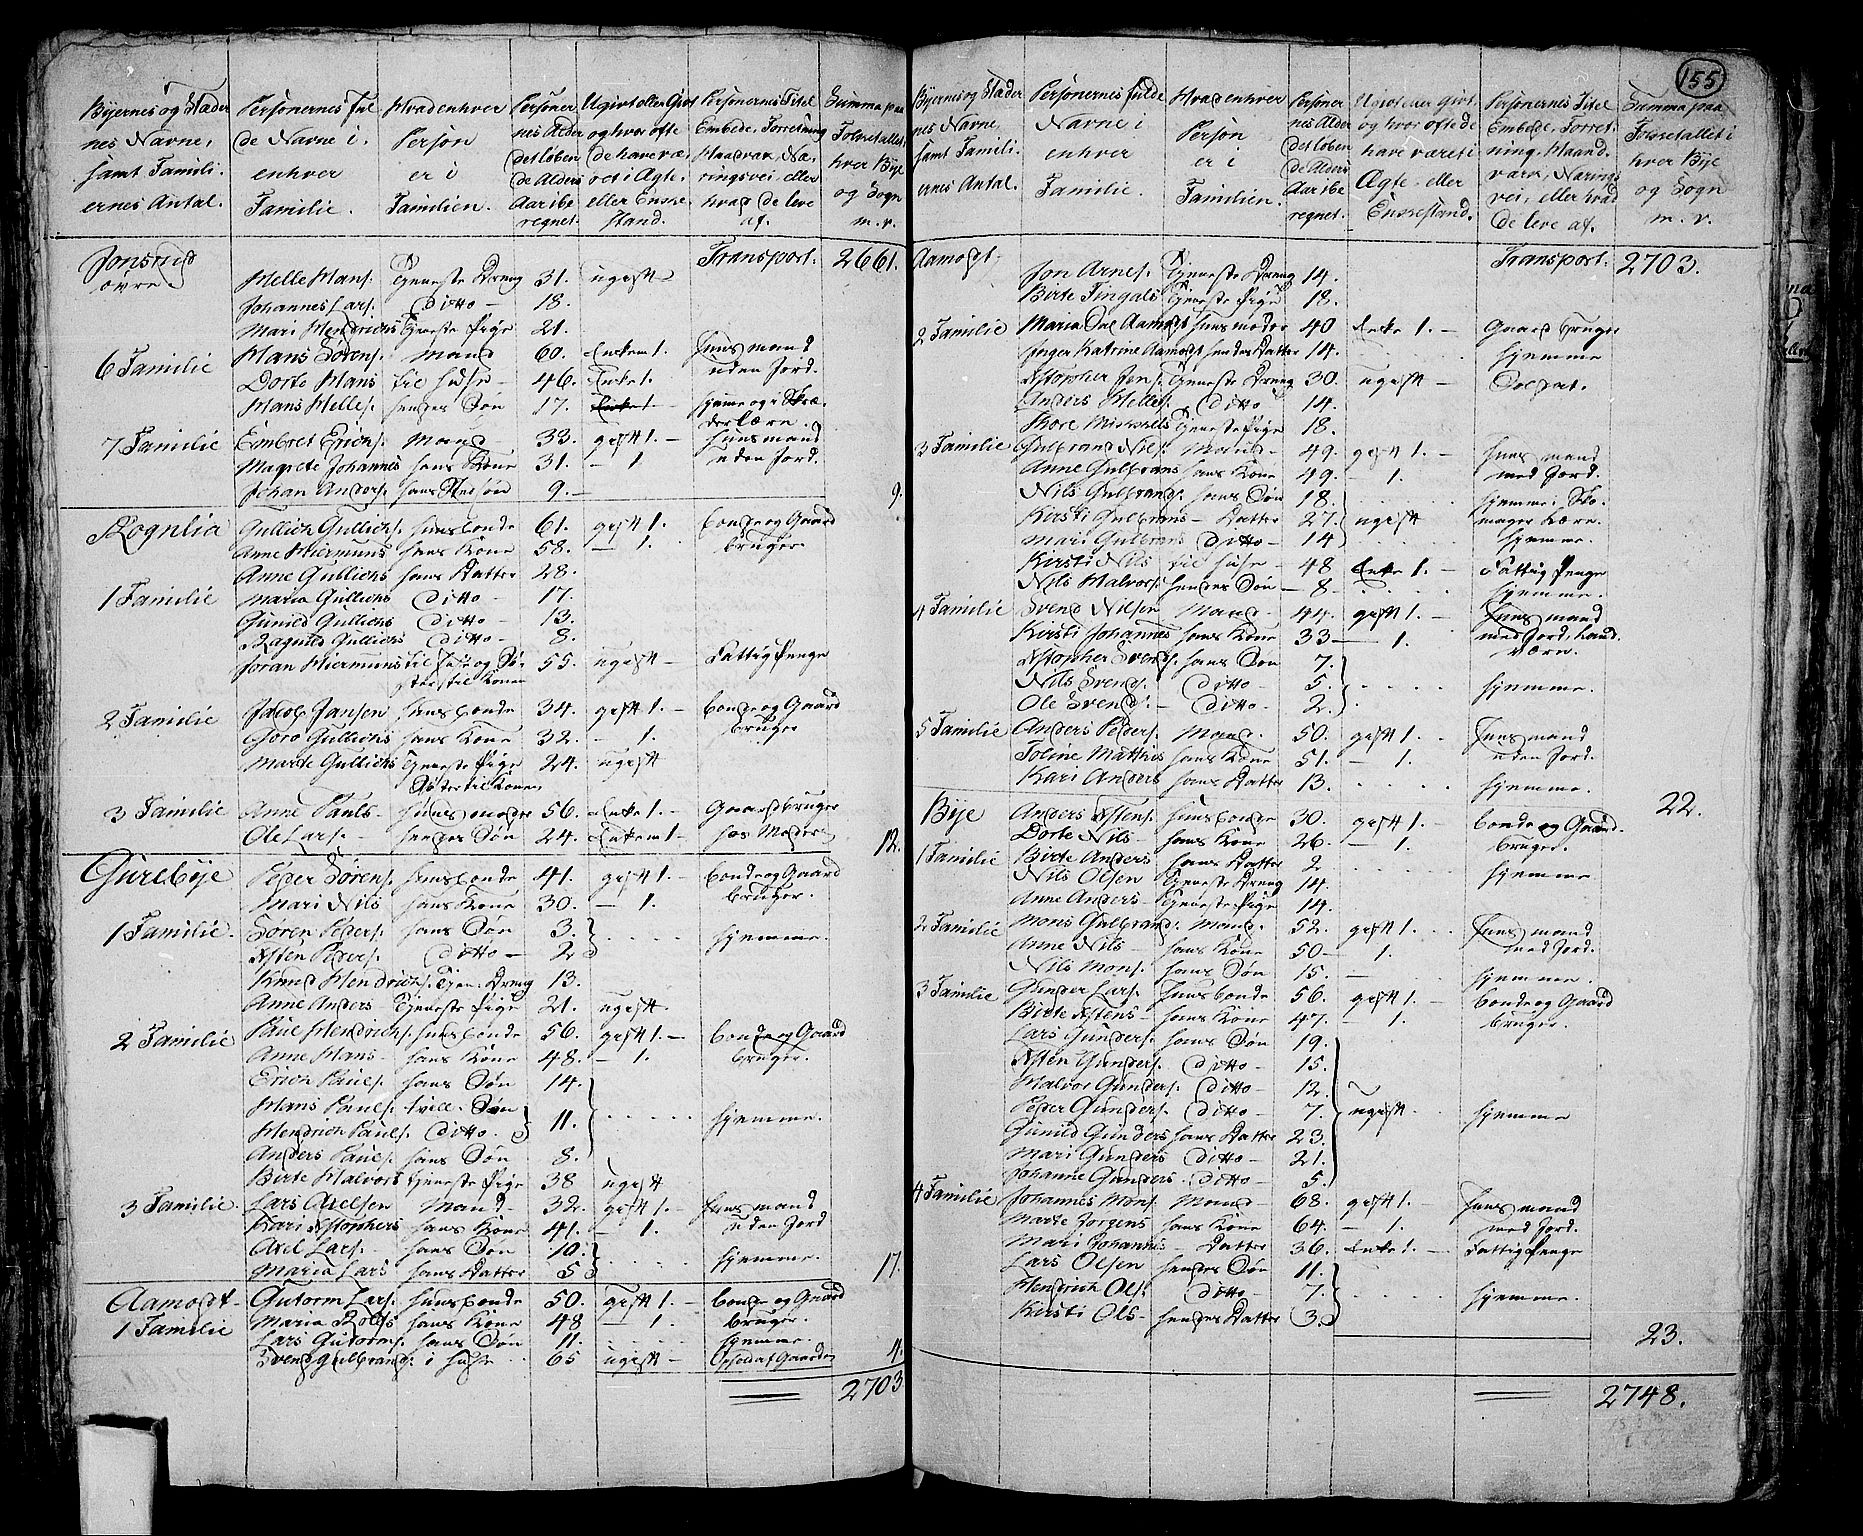 155
Byernes og Stæder nes Navne, samt Famili ernes Antal. | Personernes ful de Navne i enhver Familie. | Hvad enhver Person er i Familien. | Personer nes Alder det løben de Alders Aar ibe regnet. | Ugivt eller Givt og hvor ofte de have væ ret i Ægte, eller Enke stand. | Personernes Titel Embede, Forretning Haandværk, Næ ringsvei, eller hvad de leve af. | Summa paa Folketallet i hver Bye og Sogn m. v.
Jonsrud øvre | Transport. 2661.
Helle Hans. Tjeneste Dreng 31. ugift
Johannes Lars. Ditto 18.
Mari Hendrichs Tjeneste Pige 21.
6 Familie Hans Sørens. Mand 60. Enkem 1. Huusmand uden Jord.
Dorte Hans til huse 46. Enke 1.
Hans Helles. hendes Søn 17. hjeme og i Skræ derlære.
7 Familie Embret Erichs. Mand 33. gift 1. Huusmand uden Jord.
Magrete Johannes hans Kone 31. 1.
Johan Anders. hans Stedsøn 9. | 9.
Rognlia Gullich Gullichs. huusbonde 61. gift 1. bonde og Gaard bruger
Anne Hiermuns hans Kone 58. 1.
Anne Gullichs hans Datter 28.
1 Familie Maria Gullichs Ditto 17.
Gunild Gullichs Ditto 13.
Ragnild Gullichs Ditto 8.
Joran Hiermuns til huse og Sø ster til Konen 55. ugift Fattig Penge
2 Familie Jacob Jansen huusbonde 34. gift 1. bonde og Gaard bruger
Goro Gullichs hans Kone 32. 1.
Marte Gullichs Tjeneste Pige Søster til Konen 24. ugift
3 Familie Anne Pauls huusmoder 56. Enke 1. Gaardbruger
Ole Lars. hendes Søn 24. Enkem 1 hos Moder | 12.
Gurebye Peder Sørens. huusbonde 41. gift 1. bonde og Gaard bruger.
Mari Nils hans Kone 30. 1.
1 Familie. Søren Peders. hans Søn 3. hjemme.
Asten Peders. Ditto 2
Knud Hendrichs. Tjen. Dreng 13.
Anne Anders Tjeneste Pige 21. ugift.
2 Familie Paul Hendrichs. huusbonde 56. gift 1. bonde og Gaard bruger.
Anne Hans hans Kone 48. 1.
Erich Pauls. hans Søn 14.
Hans Pauls. tvill. Søn 11. hjemme.
Hendrich Pauls. Ditto.
Anders Pauls. hans Søn 8.
Birte Halvors tjeneste Pige 38 ugift
3 Familie. Lars Axelsen Mand 32. gift 1. Huusmand uden Jord
Kari Astophers hans Kone 41. 1.
Axel Lars. hans Søn 10. hjemme.
Maria Lars hans Datter 5 | 17.
Aamodt Gutorm Lars. huusbonde 50. gift 1. bonde og Gaard bruger.
1 Familie Maria Rolfs hans Kone 48 1.
Lars Gutorms. hans Søn 11. hjemme.
Svend Gulbrands. i huse 65 ugift Opholdt af Gaarden | 4.
2703
Byernes og Stæder nes Navne, samt Famili ernes Antal. | Personernes fulde Navne i enhver Familie. | Hvad enhver Person er i Familien. | Personer nes Alder det løben de Alders Aar ibe regnet. | Ugivt eller Givt, og hvor ofte de have været i Ægte, eller Enkestand. | Personernes Titel Embede, Forret ning, Haand værk, Nærings vei, eller hvad de leve af. | Summa paa Folketallet i hver Bye og Sogn m. v.
Aamodt | Transport. 2703.
Jon Arnes. Tjeneste Dreng 14.
Birte Tingals Tjeneste Pige 18.
2 Familie Maria Sal Aamodt huusmoder 40 Enke 1. Gaard bruger
Inger Katrine Aamodt hendes Datter 14. hjemme
Astopher Jens. Tjeneste Dreng 30. ugift Soldat.
Anders Helles. Ditto 14.
Thore Mickels Tjeneste Pige 18.
3 Familie Gulbrand Nils. Mand 49. gift 1. Huusmand med Jord.
Anne Gulbrans hans Kone 49. 1.
Nils Gulbrands. hans Søn 18. hjemme i Sko mager Lære.
Kirsti Gulbrans Datter 27. ugift
Mari Gulbrans Ditto 14 hjemme.
Kirsti Nils til huse 48 Enke 1. Fattig Penge
Nils Halvors. hendes Søn 8. hjemme.
4 Familie Svend Nilsen Mand 44. gift 1. Huusmand med Jord, Haand værk.
Kirsti Johannes hans Kone 33 1.
Astopher Svends. hans Søn 7.
Nils Svends. Ditto 5. hjemme.
Ole Svends. Ditto 2.
5 Familie Anders Peders. Mand. 50. gift 1. Huusmand uden Jord.
Toline Mathis hans Kone 51. 1.
Kari Anders hans Datter 13. hjemme. | 22.
Bye Anders Astens. huusbonde 30. gift 1. bonde og Gaard bruger.
Dorte Nils hans Kone 26. 1.
1 Familie Birte Anders hans Datter 2 hjemme
Nils Olsen Tjeneste Dreng 14.
Anne Anders Tjeneste Pige 14.
2 Familie Mons Gulbrands. Mand. 52. gift 1. Huusmand med Jord.
Anne Nils hans Kone 50 1.
Nils Mons. hans Søn 15. hjemme.
3 Familie Gunder Lars. huusbonde 56. gift 1. bonde og Gaard bruger.
Birte Astens hans Kone 47. 1.
Lars Gunders. hans Søn 19.
Asten Gunders. Ditto 15.
Halvor Gunders. Ditto 12.
Peder Gunders. Ditto 7. ugift hjemme
Gunild Gunders hans Datter 23.
Mari Gunders Ditto 21.
Johanne Gunders Ditto 5.
4 Familie Johannes Mons. Mand 68. gift 1. Huusmand med Jord.
Marte Jorgens hans Kone 64. 1.
Mari Johannes Datter 36. Enke 1. Fattig Penge
Lars Olsen hendes Søn 11.
Hendrich Ols. Ditto 7. hjemme.
Kirsti Ols hendes Datter 3. | 23.
2748.